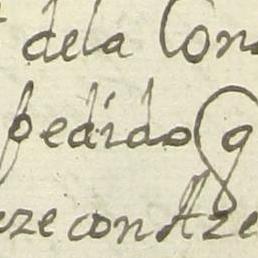 dela Con
pedido q
eze con A ze